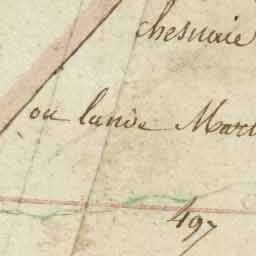 chesnaie
ou lande Mart
497